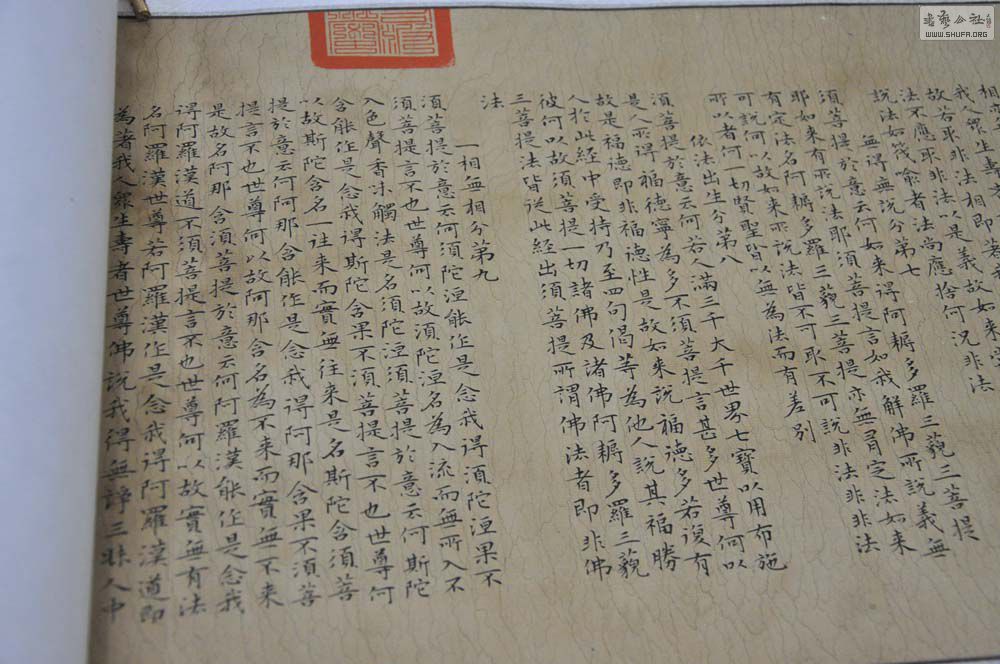 我人眾生壽
法不應取非法以是義故如來
說法如筏喻者法尚應捨何況非法
無得無說分第七
須菩提於意云何如來得阿耨多羅三藐三菩提
耶如來有所說法耶須菩提言如我解佛所說義無
有定法名阿耨多羅三藐三菩提亦無有定法如來
可說何以故如來所說法皆不可取不可說非法非非法
所以者何一切賢聖皆以無為法而有差別
依法出生分第八
須菩提於意云何若人滿三千大千世界七寶以用布施
是人所得福德寧為多不須菩提言甚多世尊何以
故是福德即非福德性是故如來說福德多若復有
人於此經中受持乃至四句偈等為他人說其福勝
彼何以故須菩提一切諸佛及諸佛阿耨多羅三藐
三菩提法皆從此經出須菩提所謂佛法者即非佛
法
一相無相分第九
須菩提於意云何須陀洹能作是念我得須陀洹果不
須菩提言不也世尊何以故須陀洹名為入流而無所入不
入色聲香味觸法是名須陀洹須菩提於意云何斯陀
含能作是念我得斯陀含果不須菩提言不也世尊何
以故斯陀含名一往來而實無往來是名斯陀含須菩
提於意云何阿那含能作是念我得阿那含果不須菩
提言不也世尊何以故阿那含名為不來而實無不來
是故名阿那含須菩提於意云何阿羅漢能作是念我
得阿羅漢道不須菩提言不也世尊何以故實無有法
名阿羅漢世尊若阿羅漢作是念我得阿羅漢道即
為著我人眾生壽者世尊佛說我得無諍三昧人中
WWW.SHUFA.ORG